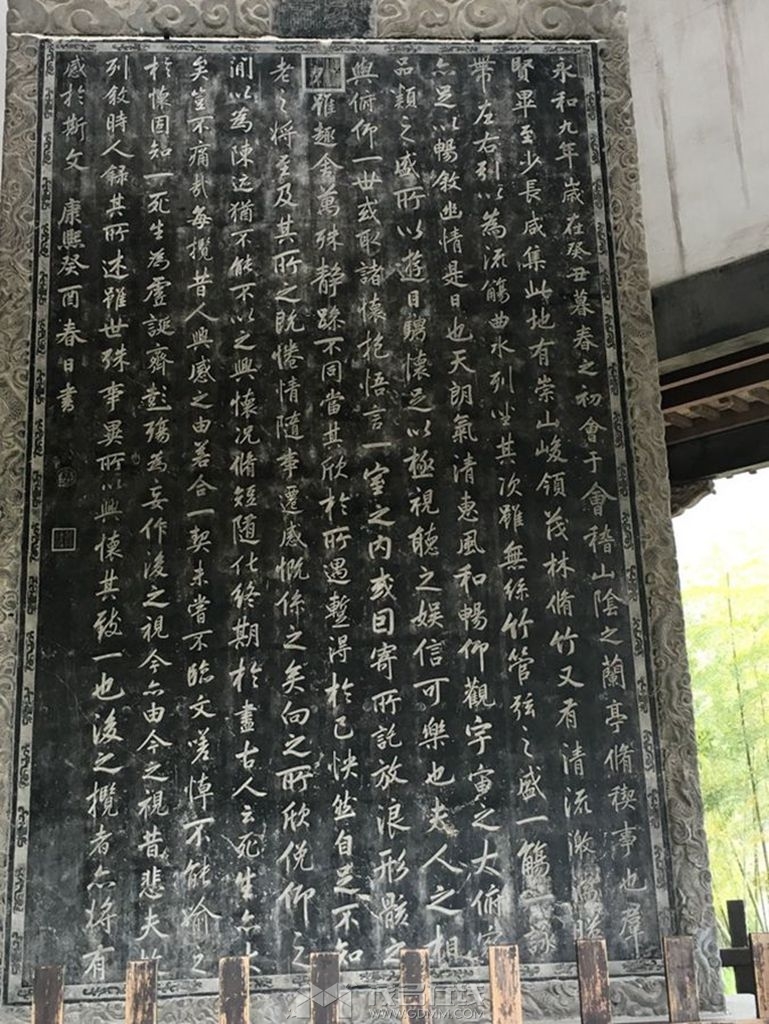 永和九年歲在癸丑暮春之初會于會稽山陰之蘭亭脩禊事也羣
賢畢至少長咸集此地有崇山峻領茂林脩竹又有清流激湍暎
帶左右引以為流觴曲水列坐其次雖無絲竹管弦之盛一觴一詠
亦足以暢敘幽情是日也天朗氣清惠風和暢仰觀宇宙之大俯察
品類之盛所以遊目騁懷足以極視聽之娛信可樂也夫人之相
與俯仰一世或取諸懷抱悟言一室之內或因寄所託放浪形骸之
雖趣舍萬殊靜躁不同當其欣於所遇蹔得於己怏然自足不知
老之將至及其所之既惓情隨事遷感慨係之矣向之所欣俛仰之
閒以為陳迹猶不能不以之興懷況脩短隨化終期於盡古人云死生亦大
矣豈不痛哉每攬昔人興感之由若合一契未嘗不臨文嗟悼不能喻之
於懷固知一死生為虛誕齊彭殤為妄作後之視今亦由今之視昔悲夫故
列敘時人錄其所述雖世殊事異所以興懷其致一也後之攬者亦將有
感於斯文 康熙癸酉春日書
WWW.GDMM.COM